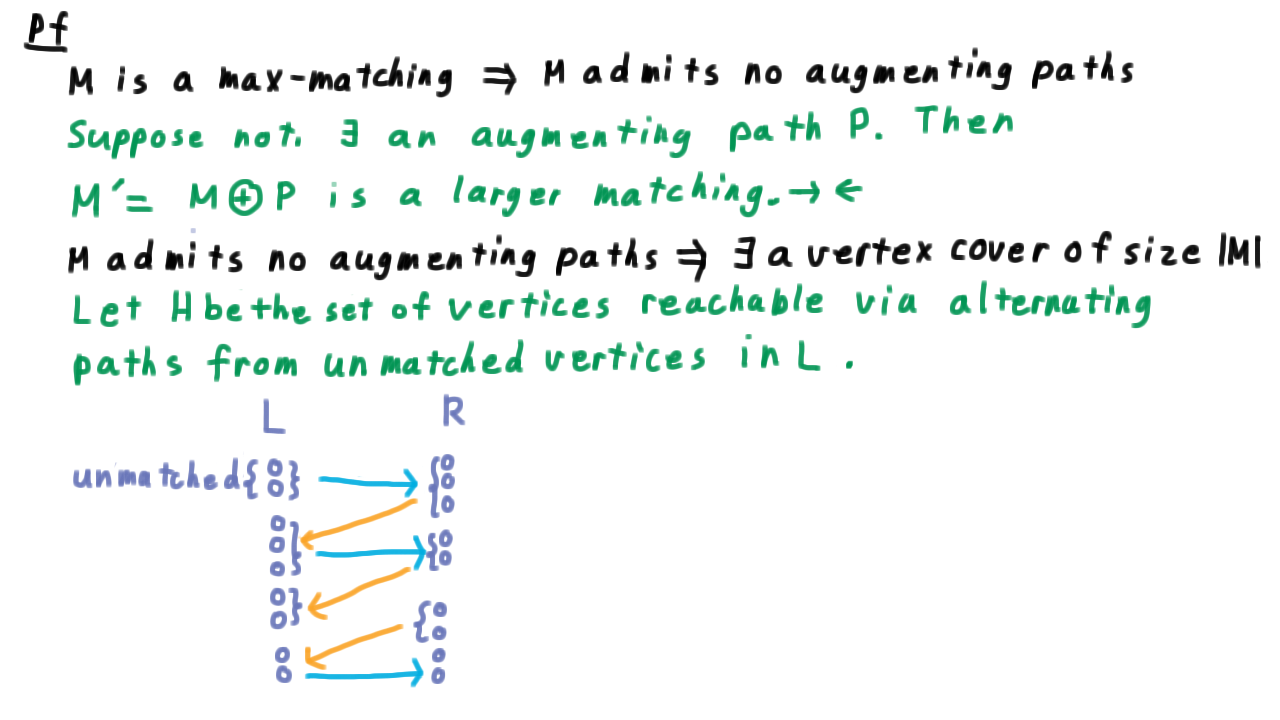 Pf
M is a max-matching ⇒ M admits no augmenting paths
Suppose not. ∃ an augmenting path P. Then
M′= M⊕P is a larger matching. →←
M admits no augmenting paths ⇒ ∃ a vertex cover of size |M|
Let H be the set of vertices reachable via alternating
paths from unmatched vertices in L.
L R
unmatched